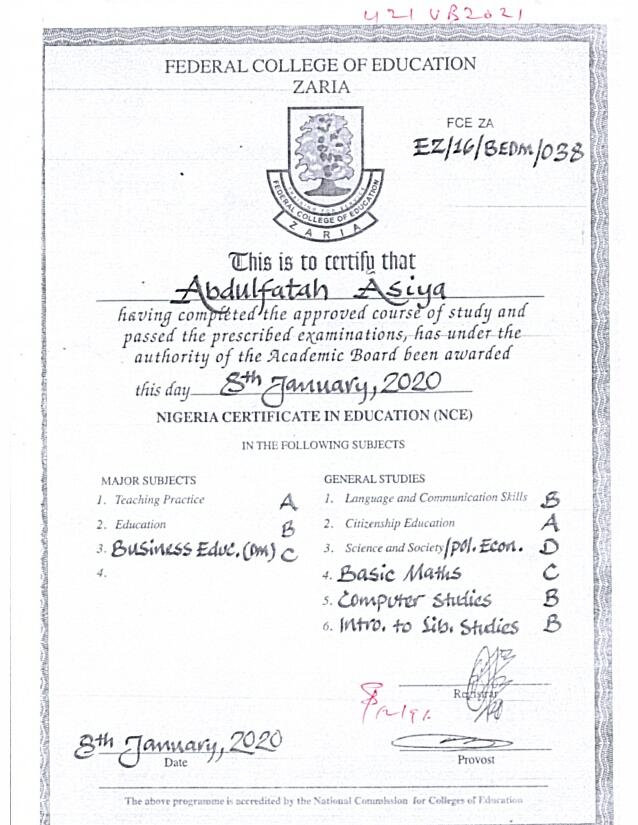 U21 VB2021
FEDERAL COLLEGE OF EDUCATION
ZARIA
FCE ZA
EZ/16/BEDM/038
TRAINING FOR SERVICE
FEDERAL COLLEGE OF EDUCATION
ZARIA
This is to certify that
Abdulfatah Asiya
having completed the approved course of study and
passed the prescribed examinations, has under the
authority of the Academic Board been awarded
this day 8th January, 2020
NIGERIA CERTIFICATE IN EDUCATION (NCE)
IN THE FOLLOWING SUBJECTS
MAJOR SUBJECTS
1. Teaching Practice A
2. Education B
3. Business Educ. (DM) C
4.
GENERAL STUDIES
1. Language and Communication Skills B
2. Citizenship Education A
3. Science and Society/Pol. Econ. D
4. Basic Maths C
5. Computer Studies B
6. Intro. to Lib. Studies B
Registrar
8th January, 2020
Date
Provost
The above programme is accredited by the National Commission for Colleges of Education